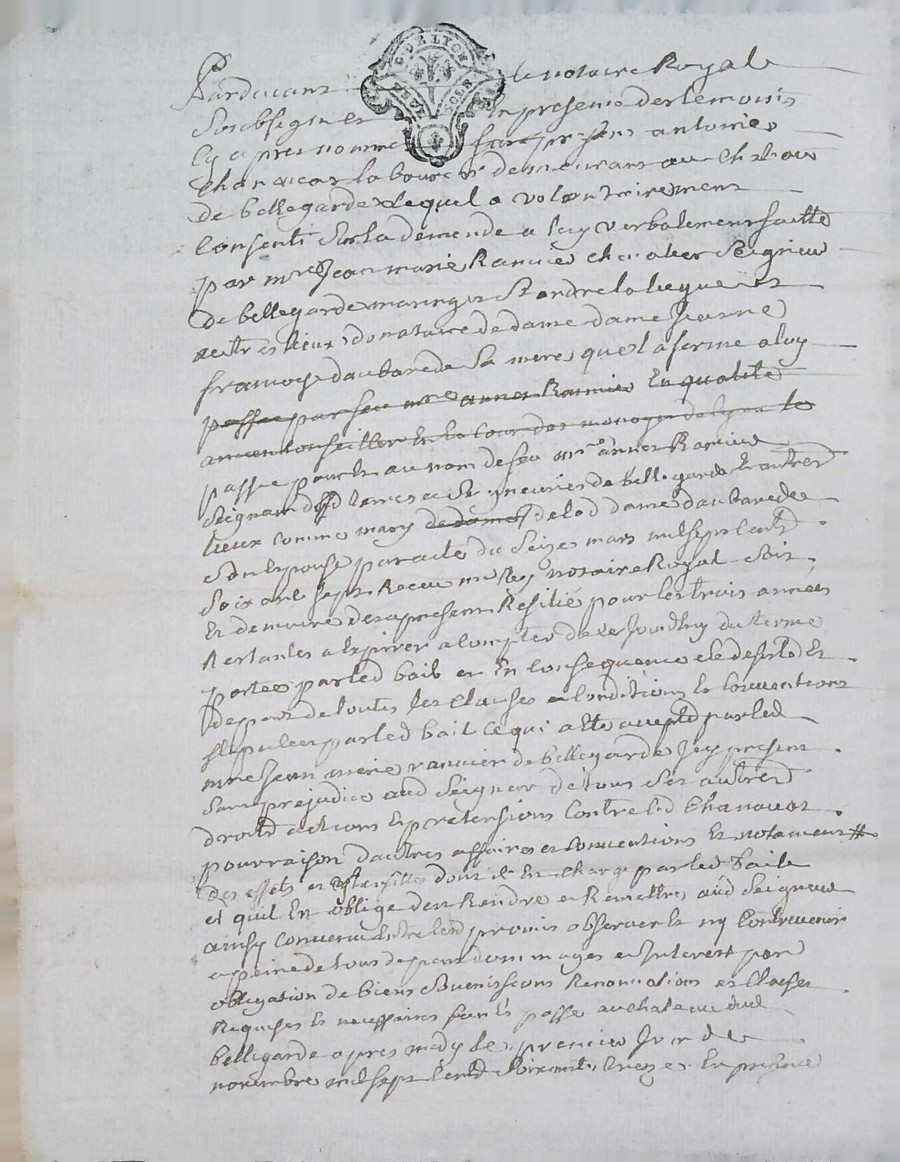 G. DE LYON
Pardevant le notaire Royal
soubsigné et en presence des temoins
cy apres nommé fut present antoine
chanavat laboureur demeurant au chateau
de bellegarde lequel a volontairement
consenti sur la demende a luy verbalement faitte
par mre Jean marie Ranvier chevalier Seigneur
de bellegarde maringes St andre la
autres lieux donataire de dame dame Jeanne
francoise daubarede sa mere que la ferme a luy
passee par feu mre annet Ranvier En qualité
ancien Conseiller En la Cour des monoyes de Lyon le
passee pour et au nom de feu mre annet Ranvier
Seigneur desd terres et Seigneuries de bellegarde Et autres
lieux comme mary de dame de lad dame daubarede
son Epouse par acte du Seize mars mil sept cents
Soixante sept Receu me Rey notaire Royal soit
Et demeure des apresent Resilié pour les trois années
Restantes a Expirer a compter de ce Jourdhuy du terme
portée par led bail et En Consequence
de part de toutes les Clauses et Conditions Et Conventions
stipulees par led bail ce qui a été accepté par led
mre Jean marie ranvier de bellegarde Icy present
sans prejudice aud Seigneur de tous ses autres
droits actions Et pretensions Contre led Chanavat
pour raison dautres affaires et Conventions Et notament #
des effets et dont il En Chargé par led bail
et quil En oblige den Rendre et Remettre aud Seigneur
ainsy Convenu Entre promis observer Et ny Contrevenir
a peine de tous depans dommages et Interest par
obligation de biens soumissions Renonciations et Clauses
Requises Et necessaires fait Et passé au chateau dud
bellegarde apres midy le premier Jour de
novembre mil sept Cents Soixante treize En presence